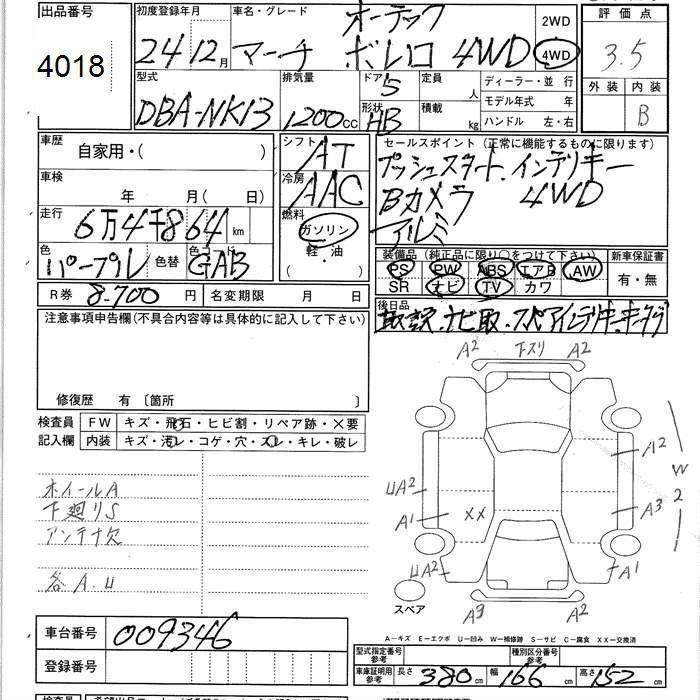 出品番号 初度登録年月 車名・グレード オーテック 2WD 評価点
4018 24 12月 マーチ ボレロ 4WD 4WD 3.5
型式 排気量 ドア 5 定員 人 ディーラー・並行 外装 内装
DBA-NK13 1200cc 形状 HB 積載 kg モデル年式 年 B
ハンドル 左・右
車歴 自家用・( ) シフト AT セールスポイント (正常に機能するものに限ります)
プッシュスタート、インテリキー
車検 年 月( 日) 冷房 AAC Bカメラ 4WD
走行 6万4千864km 燃料 ガソリン アルミ
軽・油
色 パープル 色替 色コード GAB 装備品 (純正品に限り○をつけて下さい) 新車保証書
PS PW ABS エアB AW 有・無
R券 8,700円 名変期限 月 日 SR ナビ TV カワ
後日品
注意事項申告欄(不具合内容等は具体的に記入して下さい) 取説、ナビ取、スペアインテリキー、
修復歴 有 〔箇所 〕
検査員 FW キズ・飛石・ヒビ割・リペア跡・×要
記入欄 内装 キズ・汚レ・コゲ・穴・スレ・キレ・破レ
A2 下スリ A2
A2
W2
UA2
A3
A1 XX
UA2 A1
A3 A2
スペア
ホイールA
下廻りS
アンテナ欠
各A.U
A―キズ E―エクボ U―凹み W―補修跡 S―サビ C―腐食 XX―交換済
車台番号 009346
登録番号
型式指定番号 参考 種別区分番号 参考
車庫証明用 参考 長さ 380cm 幅 166cm 高さ 152cm